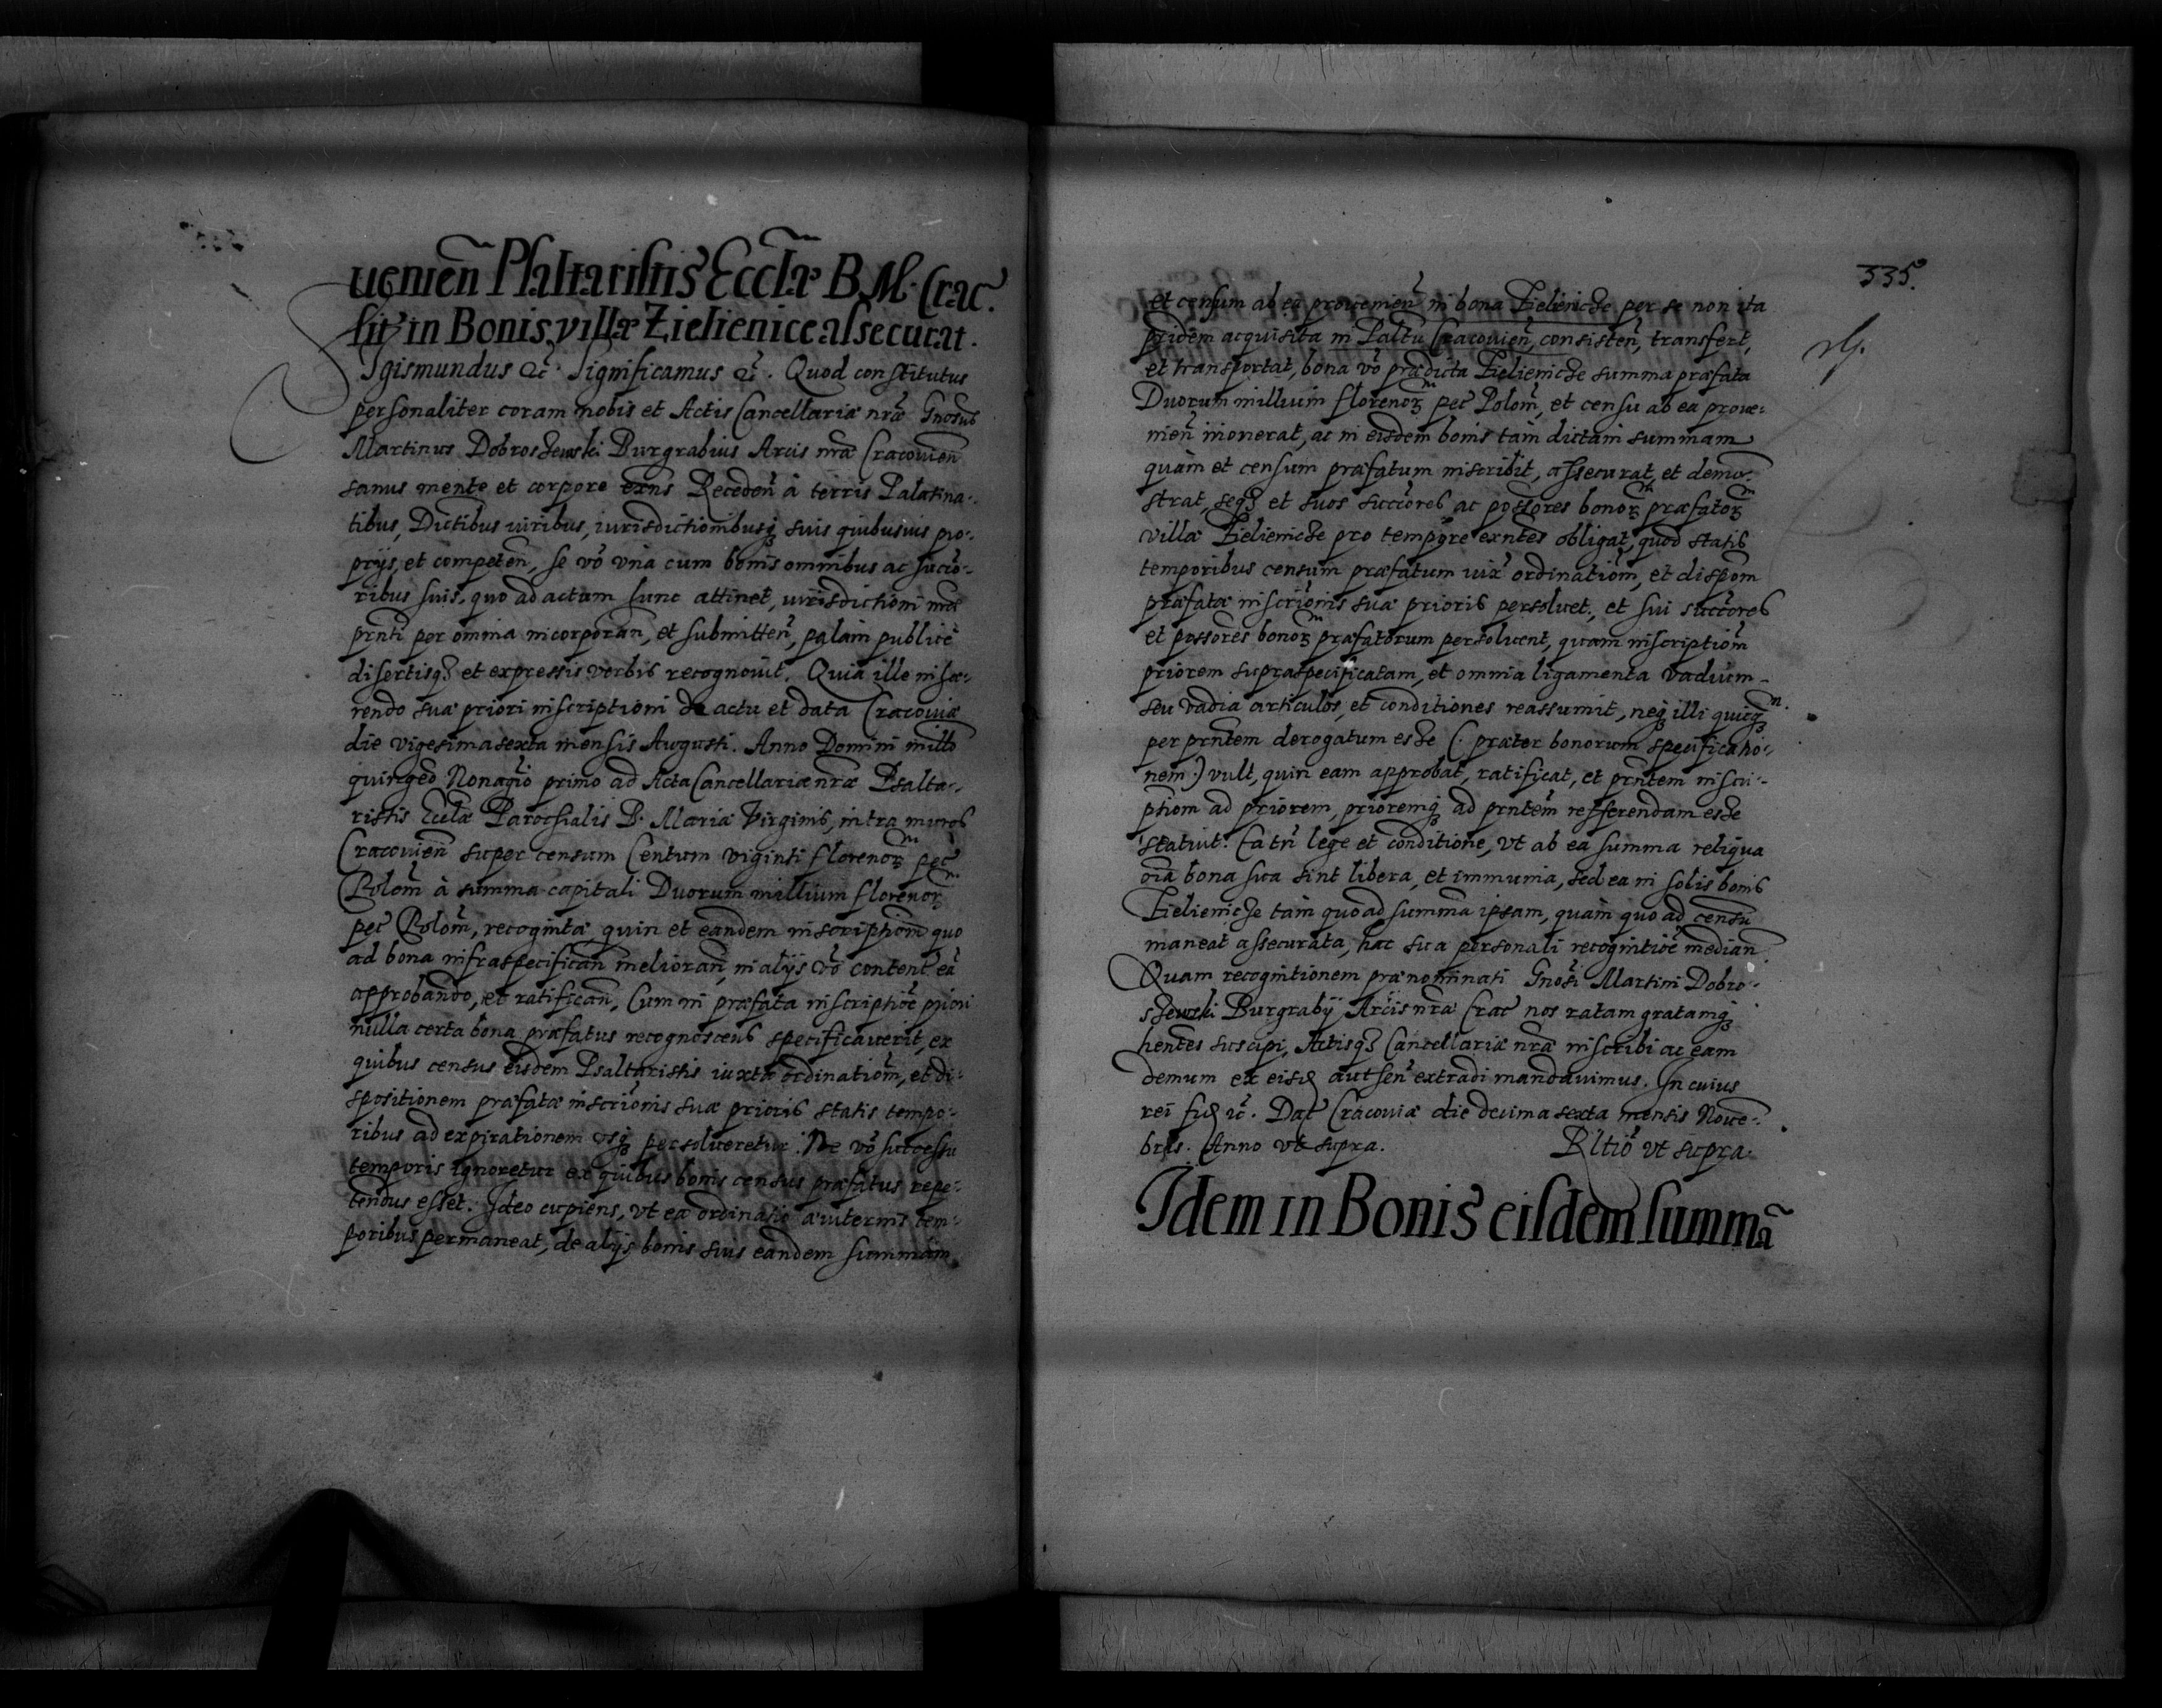 uenien Psaltaristis Eccłæ B. M. Crac.
sit in Bonis villæ Zielienice assecurat.
Sigismundus &c. Significamus &c. Quod constitutus
personaliter coram nobis et Actis Cancellariæ nræ Gnosus
Martinus Dobroszewski Burgrabius Arcis nræ Cracovien
sanus mente et corpore exns Receden à terris Palatina-
tibus, Dictibus viribus, iurisdictionibusq suis quibusvis pro-
prys, et competen, se vo vna cum bonis omnibus ac succo-
ribus suis, quo ad actum hunc attinet, iurisdictioni nræ
prnti per omnia incorporan, et submitten, palam publice
disertisq et expressis verbis recognovit. Quia ille inhæ-
rendo suæ priori inscriptioni de actu et data Cracoviæ
die vigesima sexta mensis Augusti. Anno Domini millo
quingeo Nonagio primo ad Acta Cancellariæ nræ Psalta-
ristis Eclæ Parochialis B. Mariæ Virginis, intra muros
Cracovien super censum Centum viginti florenor pec
Polom à summa capitali Duorum millium florenor
pec Polom, recognitæ quin et eandem inscriptiom quo
ad bona infraspecifican melioran, in alijs vo content ea
approbando, et ratifican, Cum in præfata inscriptioe priori
nulla certa bona præfatus recognoscens specificaverit, ex
quibus census eisdem Psaltaristis iuxta ordinatiom, et di-
spositionem præfatæ inscrionis suæ prioris statis tempo-
ribus ad expirationem usq persolveretur. Ne vo successu
temporis ignoretur ex quibus bonis census præfatus repe-
tendus esset. Ideo cupiens, vt ea ordinatio æviternis tem-
poribus permaneat, de alijs bonis suis eandem summam
335.
et censum ab ea provenien in bona Zielienicze per se non ita
pridem acquisita in Paltu Cracovien, consisten, transfert,
et transportat, bona vo prædicta Zielienicze summa præfata
Duorum millium florenor pec Polom, et censu ab ea prove-
nien inonerat, ac in eisdem bonis tam dictam summam
quam et censum præfatum inscribit, assecurat, et demo-
strat, seq et suos succores ac possores bonor præfator
villæ Zielienicze pro tempore exntes obligat, quod statis
temporibus censum præfatum iux ordinatiom, et dispom
præfatæ inscrionis suæ prioris persolvet, et sui succores
et possores bonor præfatorum persolvent, quam inscriptiom
priorem supraspecificatam, et omnia ligamenta vadium
seu vadia articulos, et conditiones reassumit, neq illi quicq
per prntem derogatum esse (. præter bonorum specificatio-
nem .) vult, quin eam approbat, ratificat, et prntem inscri-
ptiom ad priorem, prioremq ad prntem refferendam esse
statuit. Ea tn lege et conditione, vt ab ea summa reliqua
oia bona sua sint libera, et immunia, sed ea in solis bonis
Zielienicze tam quo ad summa ipsam, quam quo ad censu
maneat assecurata, hac sua personali recognitioe median.
Quam recognitionem prænominati Gnosi Martini Dobro-
szewski Burgrabij Arcis nræ Crac nos ratam gratamq
hentes suscipi, Actisq Cancellariæ nræ inscribi ac eam
demum ex eisd autsen extradi mandavimus. In cuius
rei fid &c. Dat Cracoviæ die decima sexta mensis Nove-
bris. Anno vt supra. Rltio vt supra.
Idem in Bonis eisdem summa